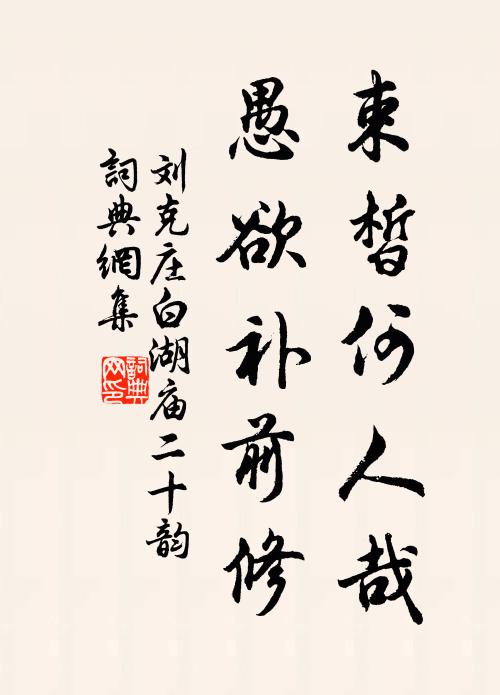 束晳何人哉
愚欲补前修
刘克庄白湖庙二十韵
詞典網集
詞典网印